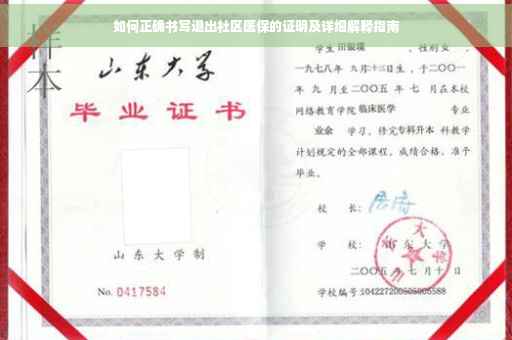 如何正确书写退出社区医保的证明及详细解释指南
样本
山东大学
毕业证书
山东大学制
No. 0417584
学生 田银瑞 ,性别女 ,
一九七八年 九月十三日生,于二〇〇一
年 九 月至二〇〇五 年 七 月在本校
网络教育学院 临床医学 专业
业余 学习,修完专科升本 科教学
计划规定的全部课程,成绩合格,准予
毕业。
校 长:
学 校: 山东大学
二〇〇五 年 七 月十 日
学校编号:104227200505005588